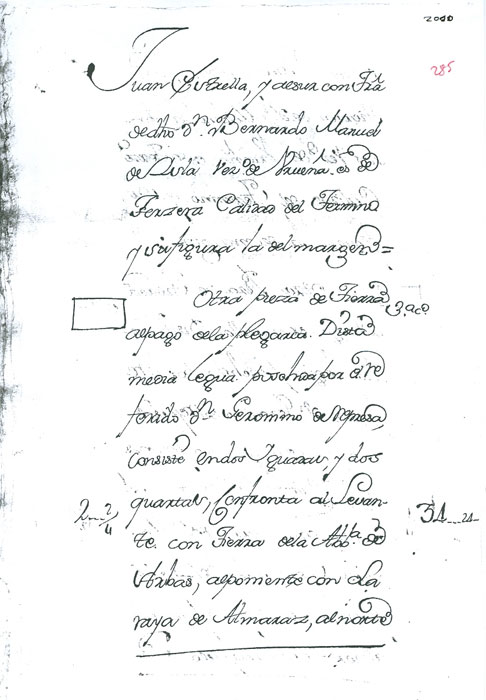 2000
285
Juan Estrella, y al sur con Frã
de dho Dn. Bernardo Manuel
de Avila Vezo. de Buena. es de
Terzera Calidad del Termino
y su figura la del margen =
Otra pieza de Tierra
al pago de la plegaria. Dista
media legua poseida por el Re
ferido Dn. Geronimo de
consiste en dos Yguaras, y dos
quartas, Confronta al Levan-
2--2/4
te con Tierra de la Abba. de
34--24-
Arbas, al poniente con La
raya de Almaraz, al norte